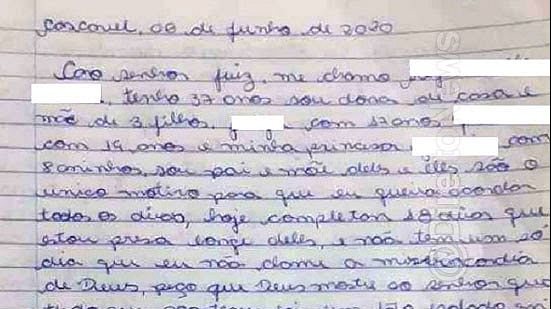 Cascavel, 06 de Junho de 2020
Caro senhor juiz, me chamo
, tenho 37 anos sou dona de casa e
mãe de 3 filhos, com 17 anos
com 14 anos e minha princesa com
8 aninhos, sou pai e mãe deles e eles são o
unico motivo para que eu queira acordar
todos os dias, hoje completam 18 dias que
estou presa longe deles, e não tem um só
dia que eu não clame a misericordia
de Deus, peço que Deus mostre ao senhor que
@DireitoNews